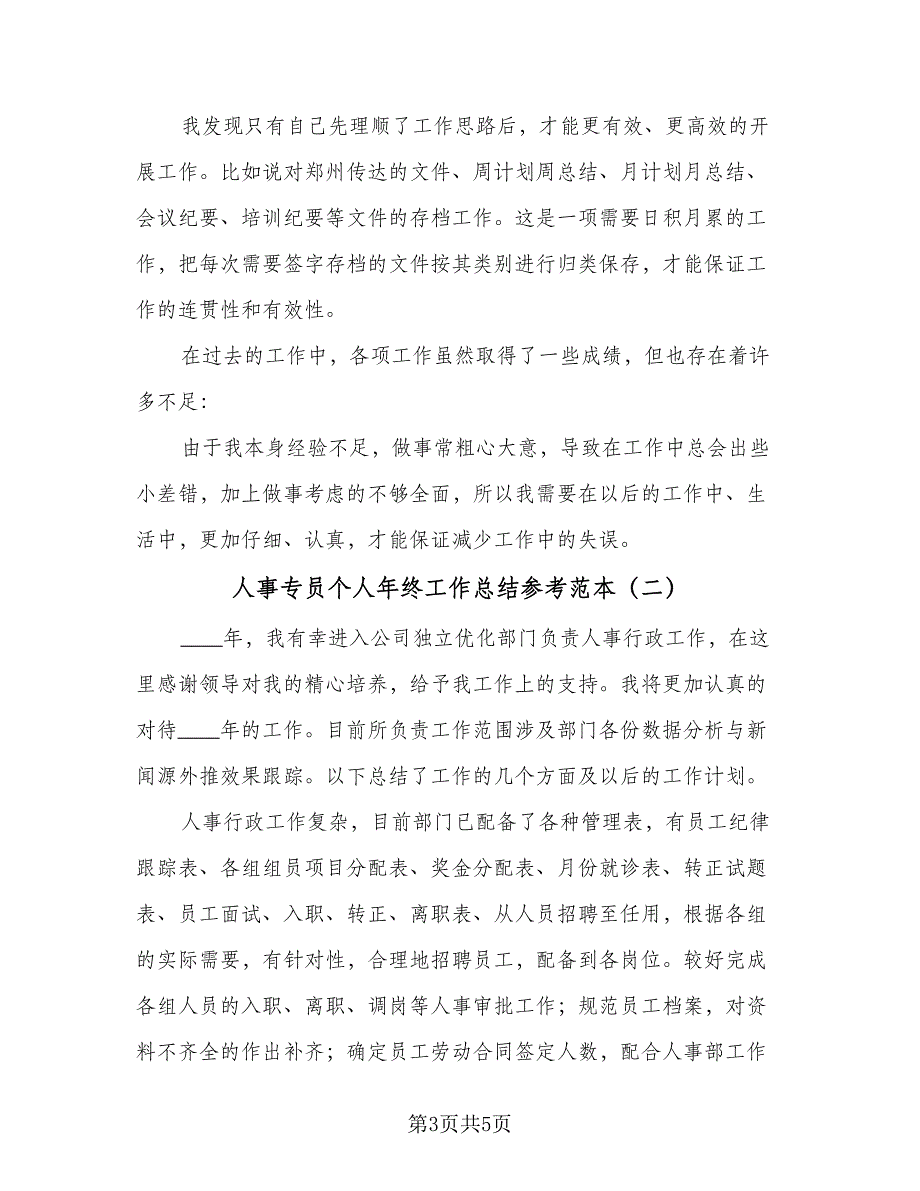 我发现只有自己先理顺了工作思路后，才能更有效、更高效的开
展工作。比如说对郑州传达的文件、周计划周总结、月计划月总结、
会议纪要、培训纪要等文件的存档工作。这是一项需要日积月累的工
作，把每次需要签字存档的文件按其类别进行归类保存，才能保证工
作的连贯性和有效性。
在过去的工作中，各项工作虽然取得了一些成绩，但也存在着许
多不足：
由于我本身经验不足，做事常粗心大意，导致在工作中总会出些
小差错，加上做事考虑的不够全面，所以我需要在以后的工作中、生
活中，更加仔细、认真，才能保证减少工作中的失误。
人事专员个人年终工作总结参考范本（二）
____年，我有幸进入公司独立优化部门负责人事行政工作，在这
里感谢领导对我的精心培养，给予我工作上的支持。我将更加认真的
对待____年的工作。目前所负责工作范围涉及部门各份数据分析与新
闻源外推效果跟踪。以下总结了工作的几个方面及以后的工作计划。
人事行政工作复杂，目前部门已配备了各种管理表，有员工纪律
跟踪表、各组组员项目分配表、奖金分配表、月份就诊表、转正试题
表、员工面试、入职、转正、离职表、从人员招聘至任用，根据各组
的实际需要，有针对性，合理地招聘员工，配备到各岗位。较好完成
各组人员的入职、离职、调岗等人事审批工作；规范员工档案，对资
料不齐全的作出补齐；确定员工劳动合同签定人数，配合人事部工作
第3页共5页